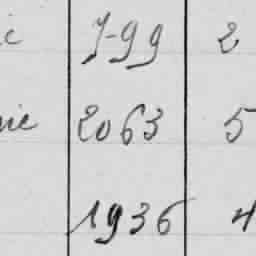 ic 7-99 2
nie 2063 5
1936 4